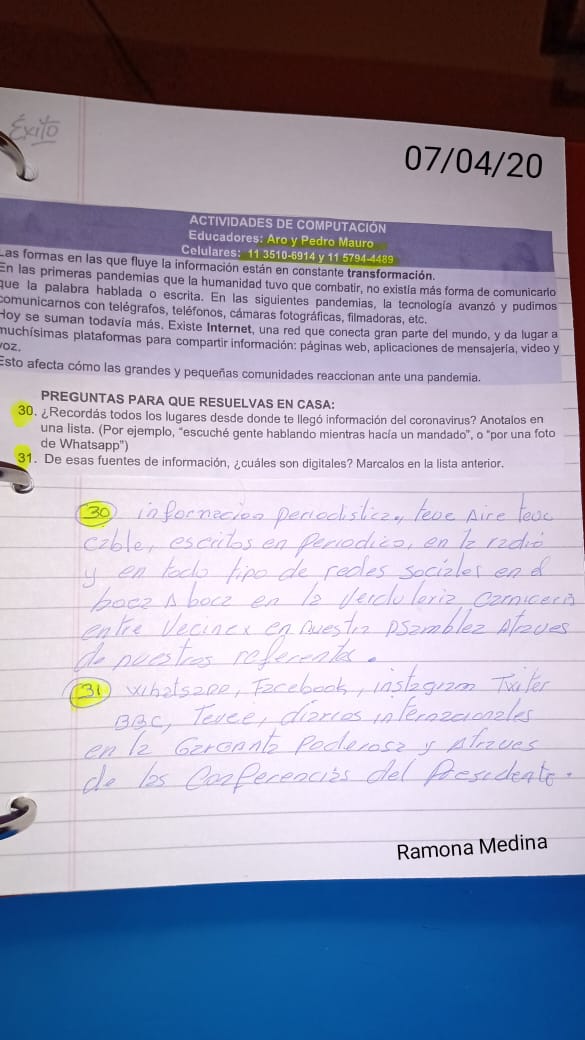 Éxito
07/04/20
ACTIVIDADES DE COMPUTACIÓN
Educadores: Aro y Pedro Mauro
Celulares: 11 3510-6914 y 11 5794-4489
Las formas en las que fluye la información están en constante transformación.
En las primeras pandemias que la humanidad tuvo que combatir, no existía más forma de comunicarlo
que la palabra hablada o escrita. En las siguientes pandemias, la tecnología avanzó y pudimos
comunicarnos con telégrafos, teléfonos, cámaras fotográficas, filmadoras, etc.
Hoy se suman todavía más. Existe Internet, una red que conecta gran parte del mundo, y da lugar a
muchísimas plataformas para compartir información: páginas web, aplicaciones de mensajería, video y
voz.
Esto afecta cómo las grandes y pequeñas comunidades reaccionan ante una pandemia.
PREGUNTAS PARA QUE RESUELVAS EN CASA:
30. ¿Recordás todos los lugares desde donde te llegó información del coronavirus? Anotalos en
una lista. (Por ejemplo, "escuché gente hablando mientras hacía un mandado", o "por una foto
de Whatsapp")
31. De esas fuentes de información, ¿cuáles son digitales? Marcalos en la lista anterior.
30 informacion periodistica, teve Aire teve
cable, escritos en Periodico, en la radio
y en todo tipo de redes sociales en el
boca A boca en la Verduleria Carniceria
entre Vecinex en nuestra Asamblea Atraves
de nuestros referentes.
31 Whatsapp, Facebook, instagram Twiter
BBC, Tevee, diarios internacionales
en la Garganta Poderosa y Atraves
de las Conferencias del Presidente.
Ramona Medina